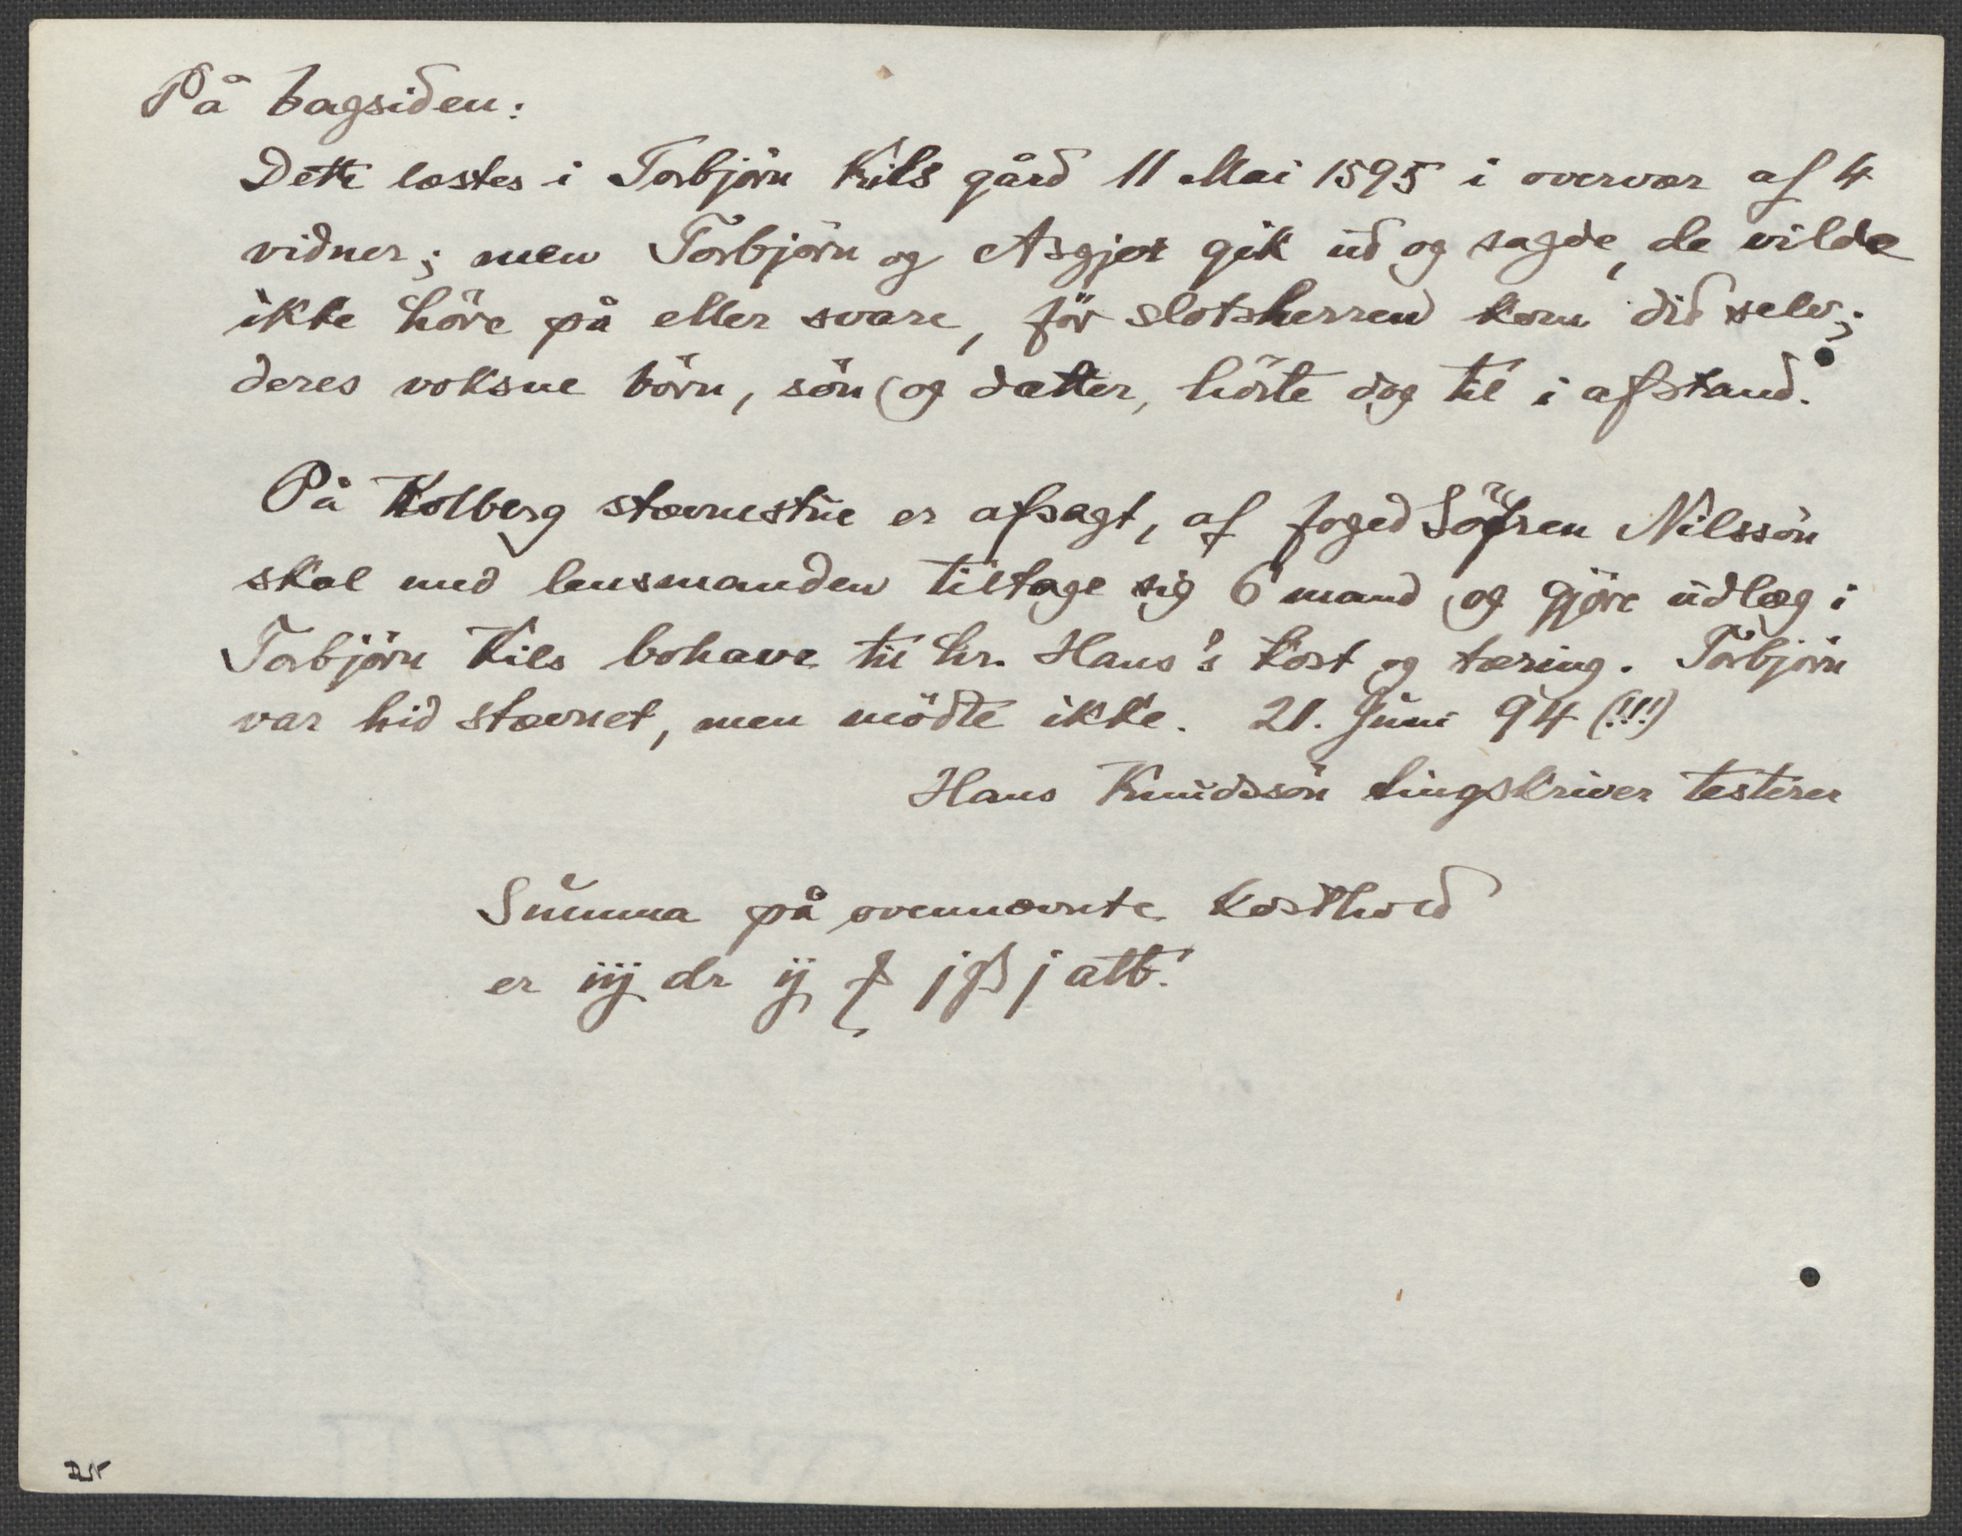 På bagsiden:
Dette læstes i Torbjörn Kils gård 11 Mai 1595 i overvær af 4
vidner; men Torbjörn og Asgjer gik ud og sagde, de vilde
ikke höre på eller svare, för slotsherren kom did selv;
deres voksne börn, sön og datter, hörte dog til i afstand.
På Kolberg stævnestue er afsagt, af foged Söfren Nilssön
skal med lensmanden tiltage sig 6 mand og gjöre udlæg i
Torbjörn Kils bohave til hr. Hans's kost og tæring. Torbjörn
var hid stævnet, men mödte ikke. 21. Juni 94 (!!!)
Hans Knudssön tingskriver testerer
Summa på ovennævnte kosthold
er iij dr ij j ß j alb.
DN